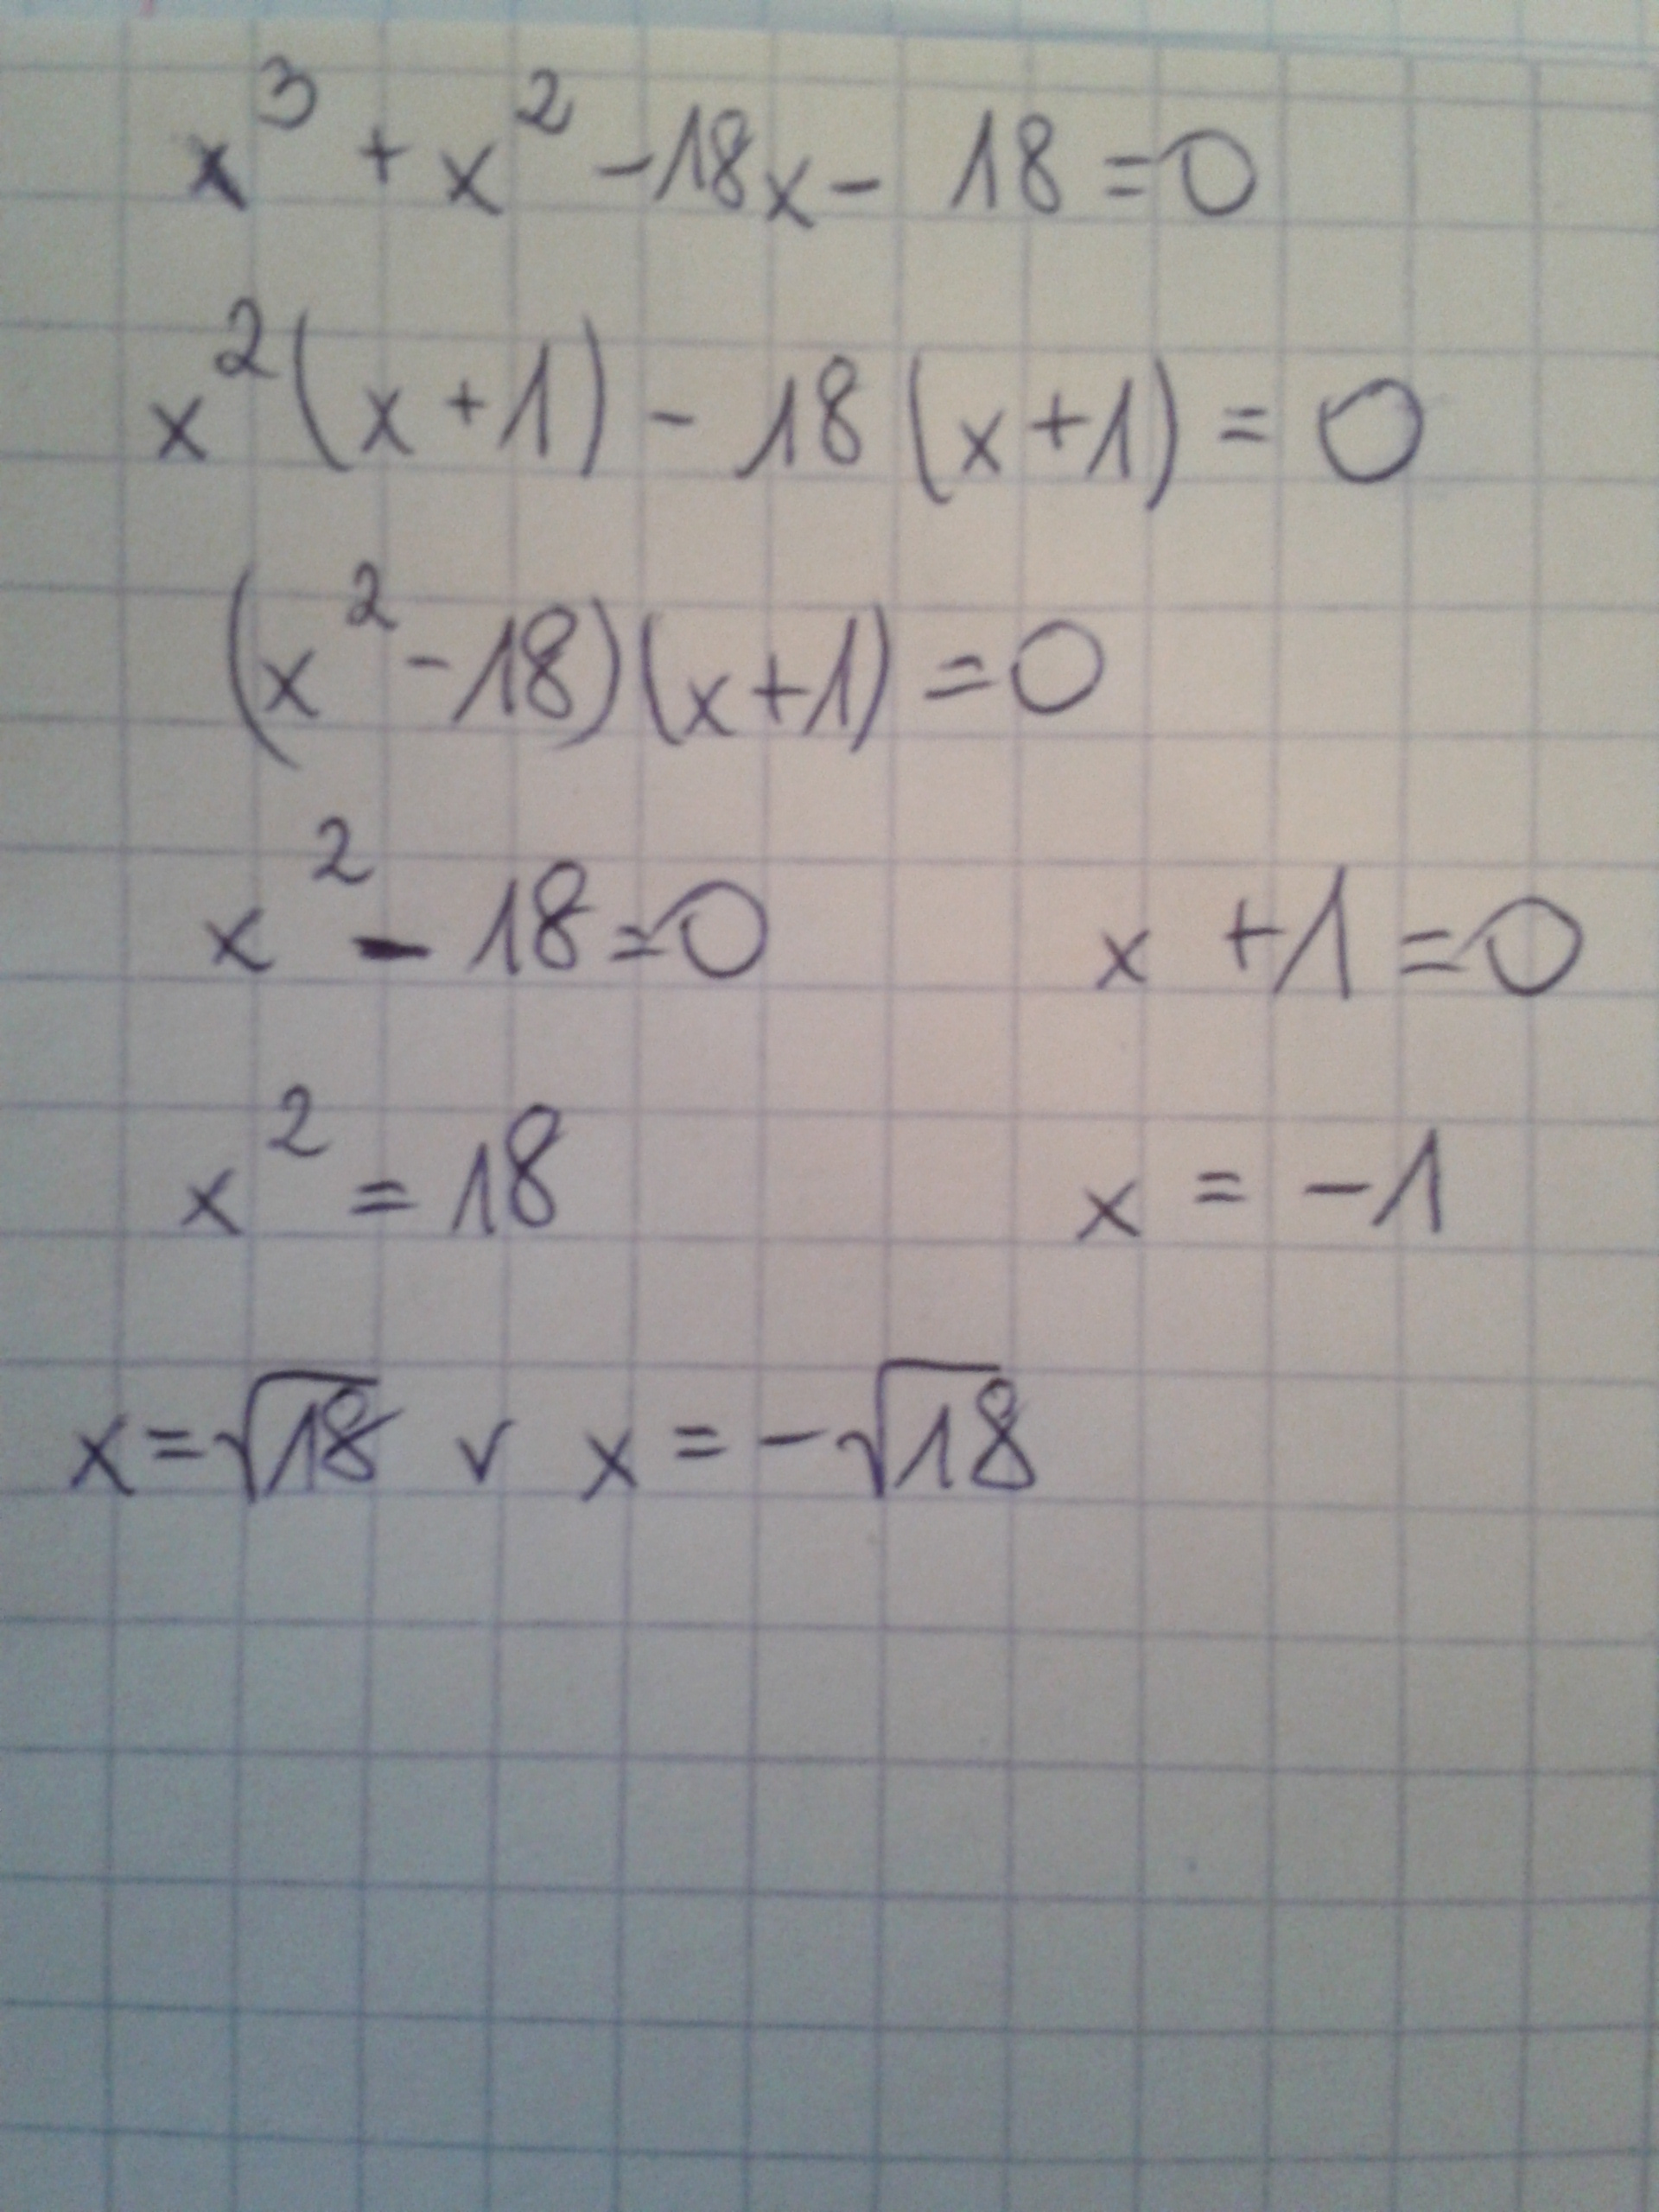 x³ + x² - 18x - 18 = 0
x² (x + 1) - 18 (x + 1) = 0
(x² - 18) (x + 1) = 0
x² - 18 = 0 x + 1 = 0
x² = 18 x = -1
x = √18 ∨ x = -√18